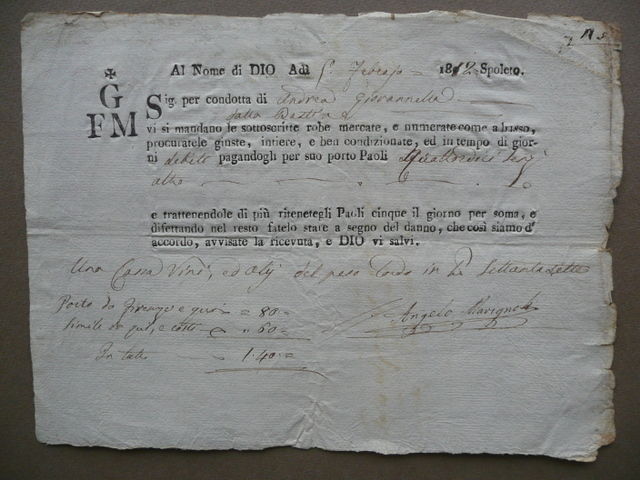 Al Nome di DIO Adì 5. Febrajo 1812 Spoleto.
G
FM
Sig. per condotta di Andrea Giovannella
vi si mandano le sottoscritte robe mercate, e numerate come a basso,
procuratele giuste, intiere, e ben condizionate, ed in tempo di gior-
ni debiti pagandogli per suo porto Paoli Quattordici
e trattenendole di più ritenetegli Paoli cinque il giorno per soma, e
difettando nel resto fatelo stare a segno del danno, che così siamo d'
accordo, avvisate la ricevuta, e DIO vi salvi.
Una Cassa Vini, ed del peso lordo in Settanta Sette
Porto da Firenze e qui = 80 =
Simile da qui, e = 60 =
In tutto 1:40 =
Angelo